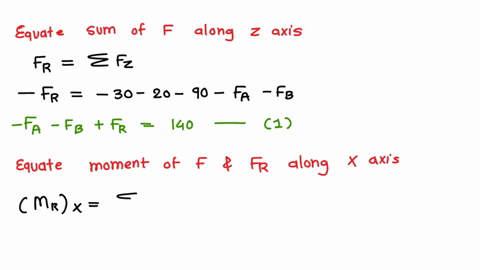 Equate sum of F along z axis
F_R = Σ F_z
- F_R = - 30 - 20 - 90 - F_A - F_B
- F_A - F_B + F_R = 140 — (1)
Equate moment of F & F_R along x axis
(M_R)_x =